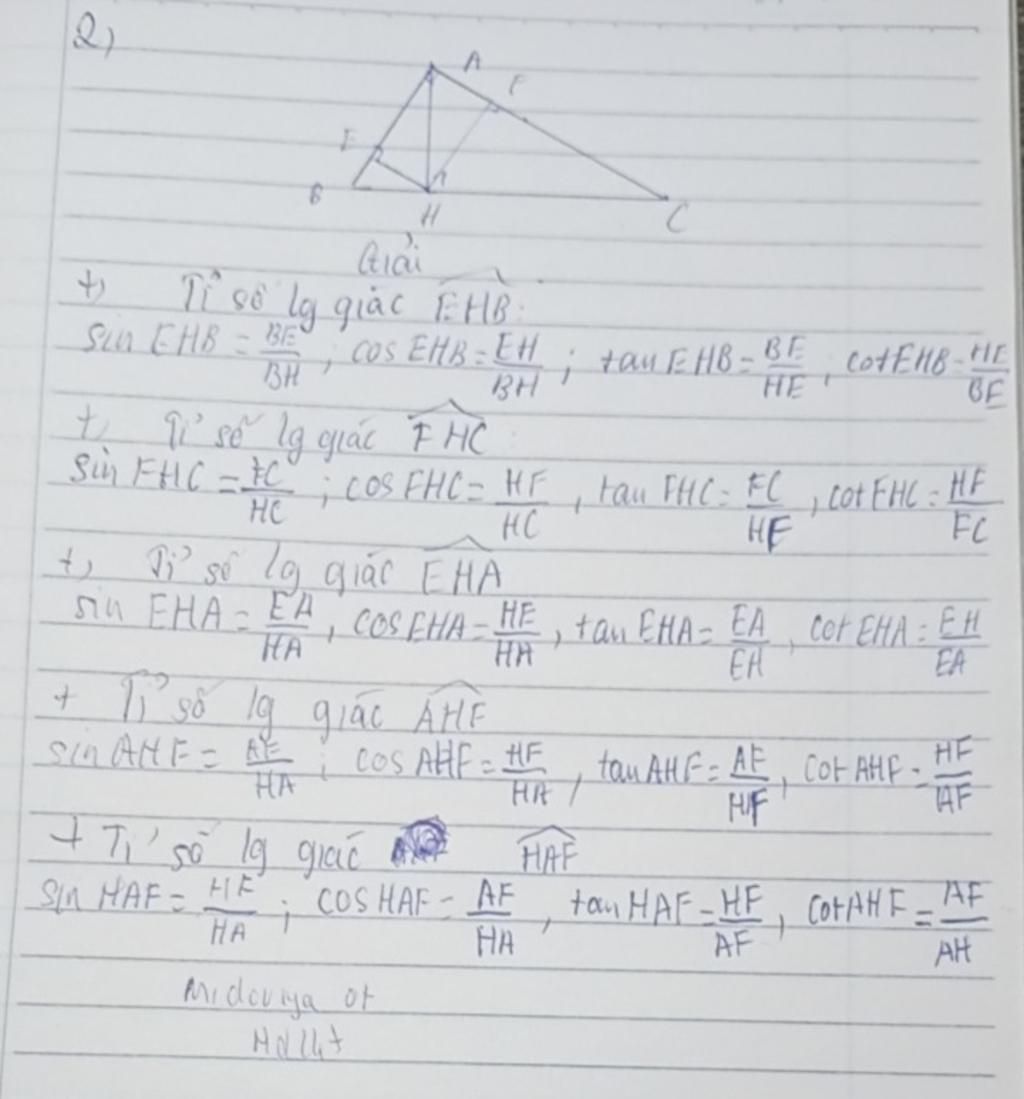 2)
A
F
E
B
H
C
Giải
+) Tỉ số lg giác EHB:
sin EHB = BE/BH, cos EHB = EH/BH; tan EHB = BE/HE, cot EHB = HE/BE
+, Tỉ số lg giác FHC:
sin FHC = FC/HC; cos FHC = HF/HC, tan FHC = FC/HF, cot FHC = HF/FC
+, Tỉ số lg giác EHA
sin EHA = EA/HA, cos EHA = HE/HA, tan EHA = EA/EH, cot EHA = EH/EA
+ Tỉ số lg giác AHF
sin AHF = AF/HA; cos AHF = HF/HA, tan AHF = AF/HF, cot AHF = HF/AF
+ Tỉ số lg giác HAF
sin HAF = HF/HA; cos HAF = AF/HA, tan HAF = HF/AF, cot AHF = AF/AH